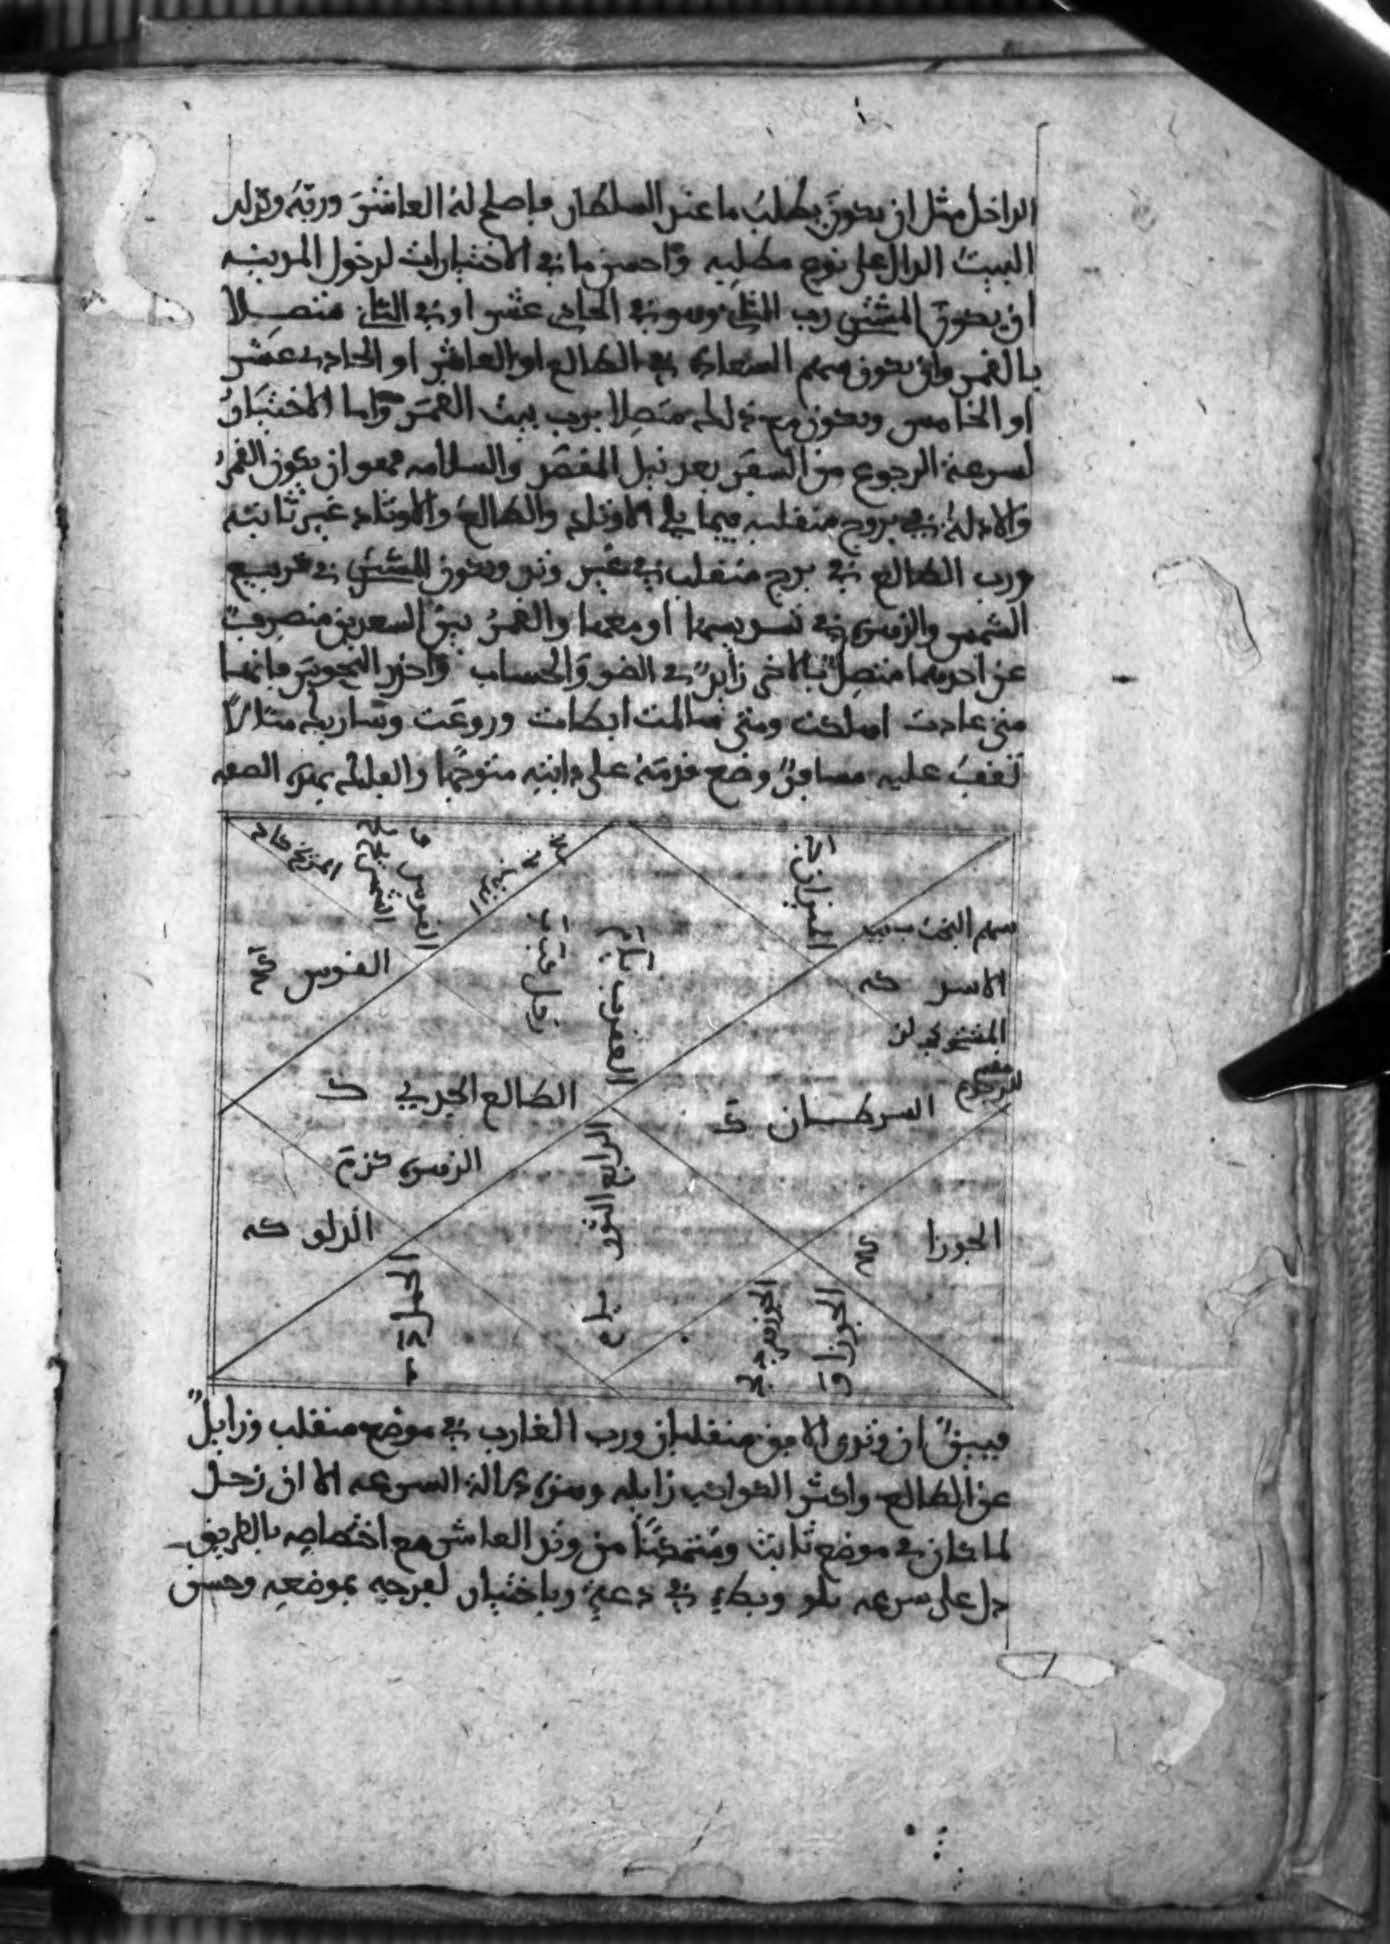 الداخل مثل ان يكون يطلب ما عند السلطان فاصلح له العاشر وربه وكذلك
البيت الدال على نوع مطلبه واحسن ما في الاختيارات لدخول المدينة
ان يكون المشتري رب الثاني وهو في الحادي عشر او في الثاني متصلا
بالقمر وان يكون سهم السعادة في الطالع او العاشر او الحادي عشر
او الخامس ويكون مع ذلك متصلا برب بيت القمر واما الاختيار
لسرعة الرجوع من السفر بعد نيل المقصد والسلامه فهو ان يكون القمر
والادلة في بروج منقلبه فيما يلي الاوتاد والطالع والاوتاد غير ثابته
ورب الطالع في برج منقلب في غير وتد ويكون المشتري في تربيع
الشمس والزهرة في تسديسها او معها والقمر بين السعدين منصرفا
عن احدهما متصلا بالاخر زايدا في الضو والحساب واحذر النحوس فانها
متى عادت اهلكت ومتى سالمت ابطات وروعت وساريك مثالا
تقف عليه مسافر وضع قدمه على دابته متوجها والفلك بهذه الصفه
المريخ
المشتري
القوس
الميزان
سهم البخت
القوس كح
زحل
العقرب
الاسد كه
الطالع الجدي ك
السرطان ك
الزهرة
الرابع الثور
الدلو كه
الجوزا
الحمل
فبين ان وتدي الافق منقلبان ورب الغارب في موضع منقلب وزايل
عن الطالع واكثر الكواكب زايله وهذه دلالة السرعه الا ان زحل
لما كان في موضع ثابت ومتمكنا من وتد العاشر مع اختصاصه بالطريق
دل على سرعه تلو وبطء في دعة وباختيار لفرحه بموضعه وحسن